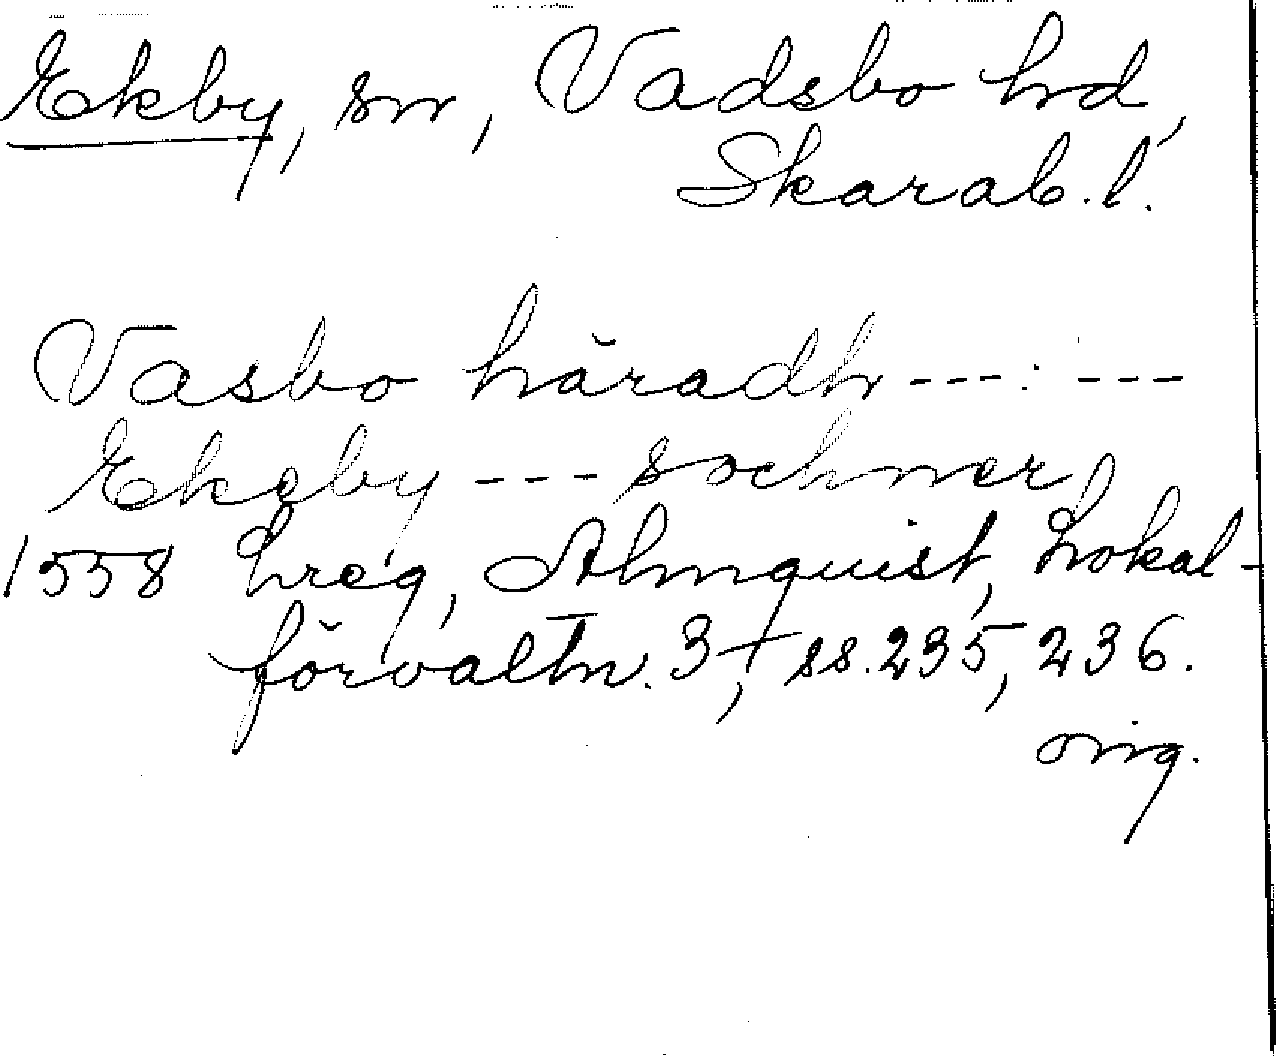 Ekby, sn, Vadsbo hd,
Skarab. l.
Vasbo häradh ---:---
Ekeby --- sochner
1558 Lreg, Almquist, Lokal-
förvaltn. 3 +, ss. 235, 236.
orig.